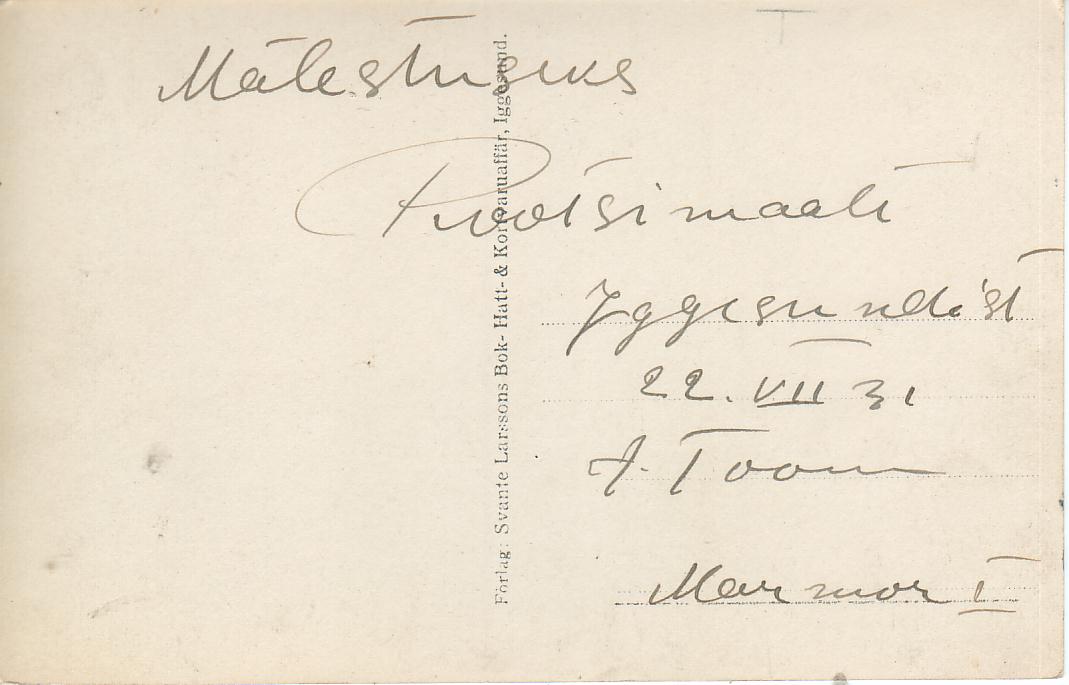 Mälestuseks
Rootsimaalt
Iggesundist
22. VII 31
A. Toom
Marmor I
Förlag: Svante Larssons Bok- Hatt- & Kortvaruaffär, Iggesund.